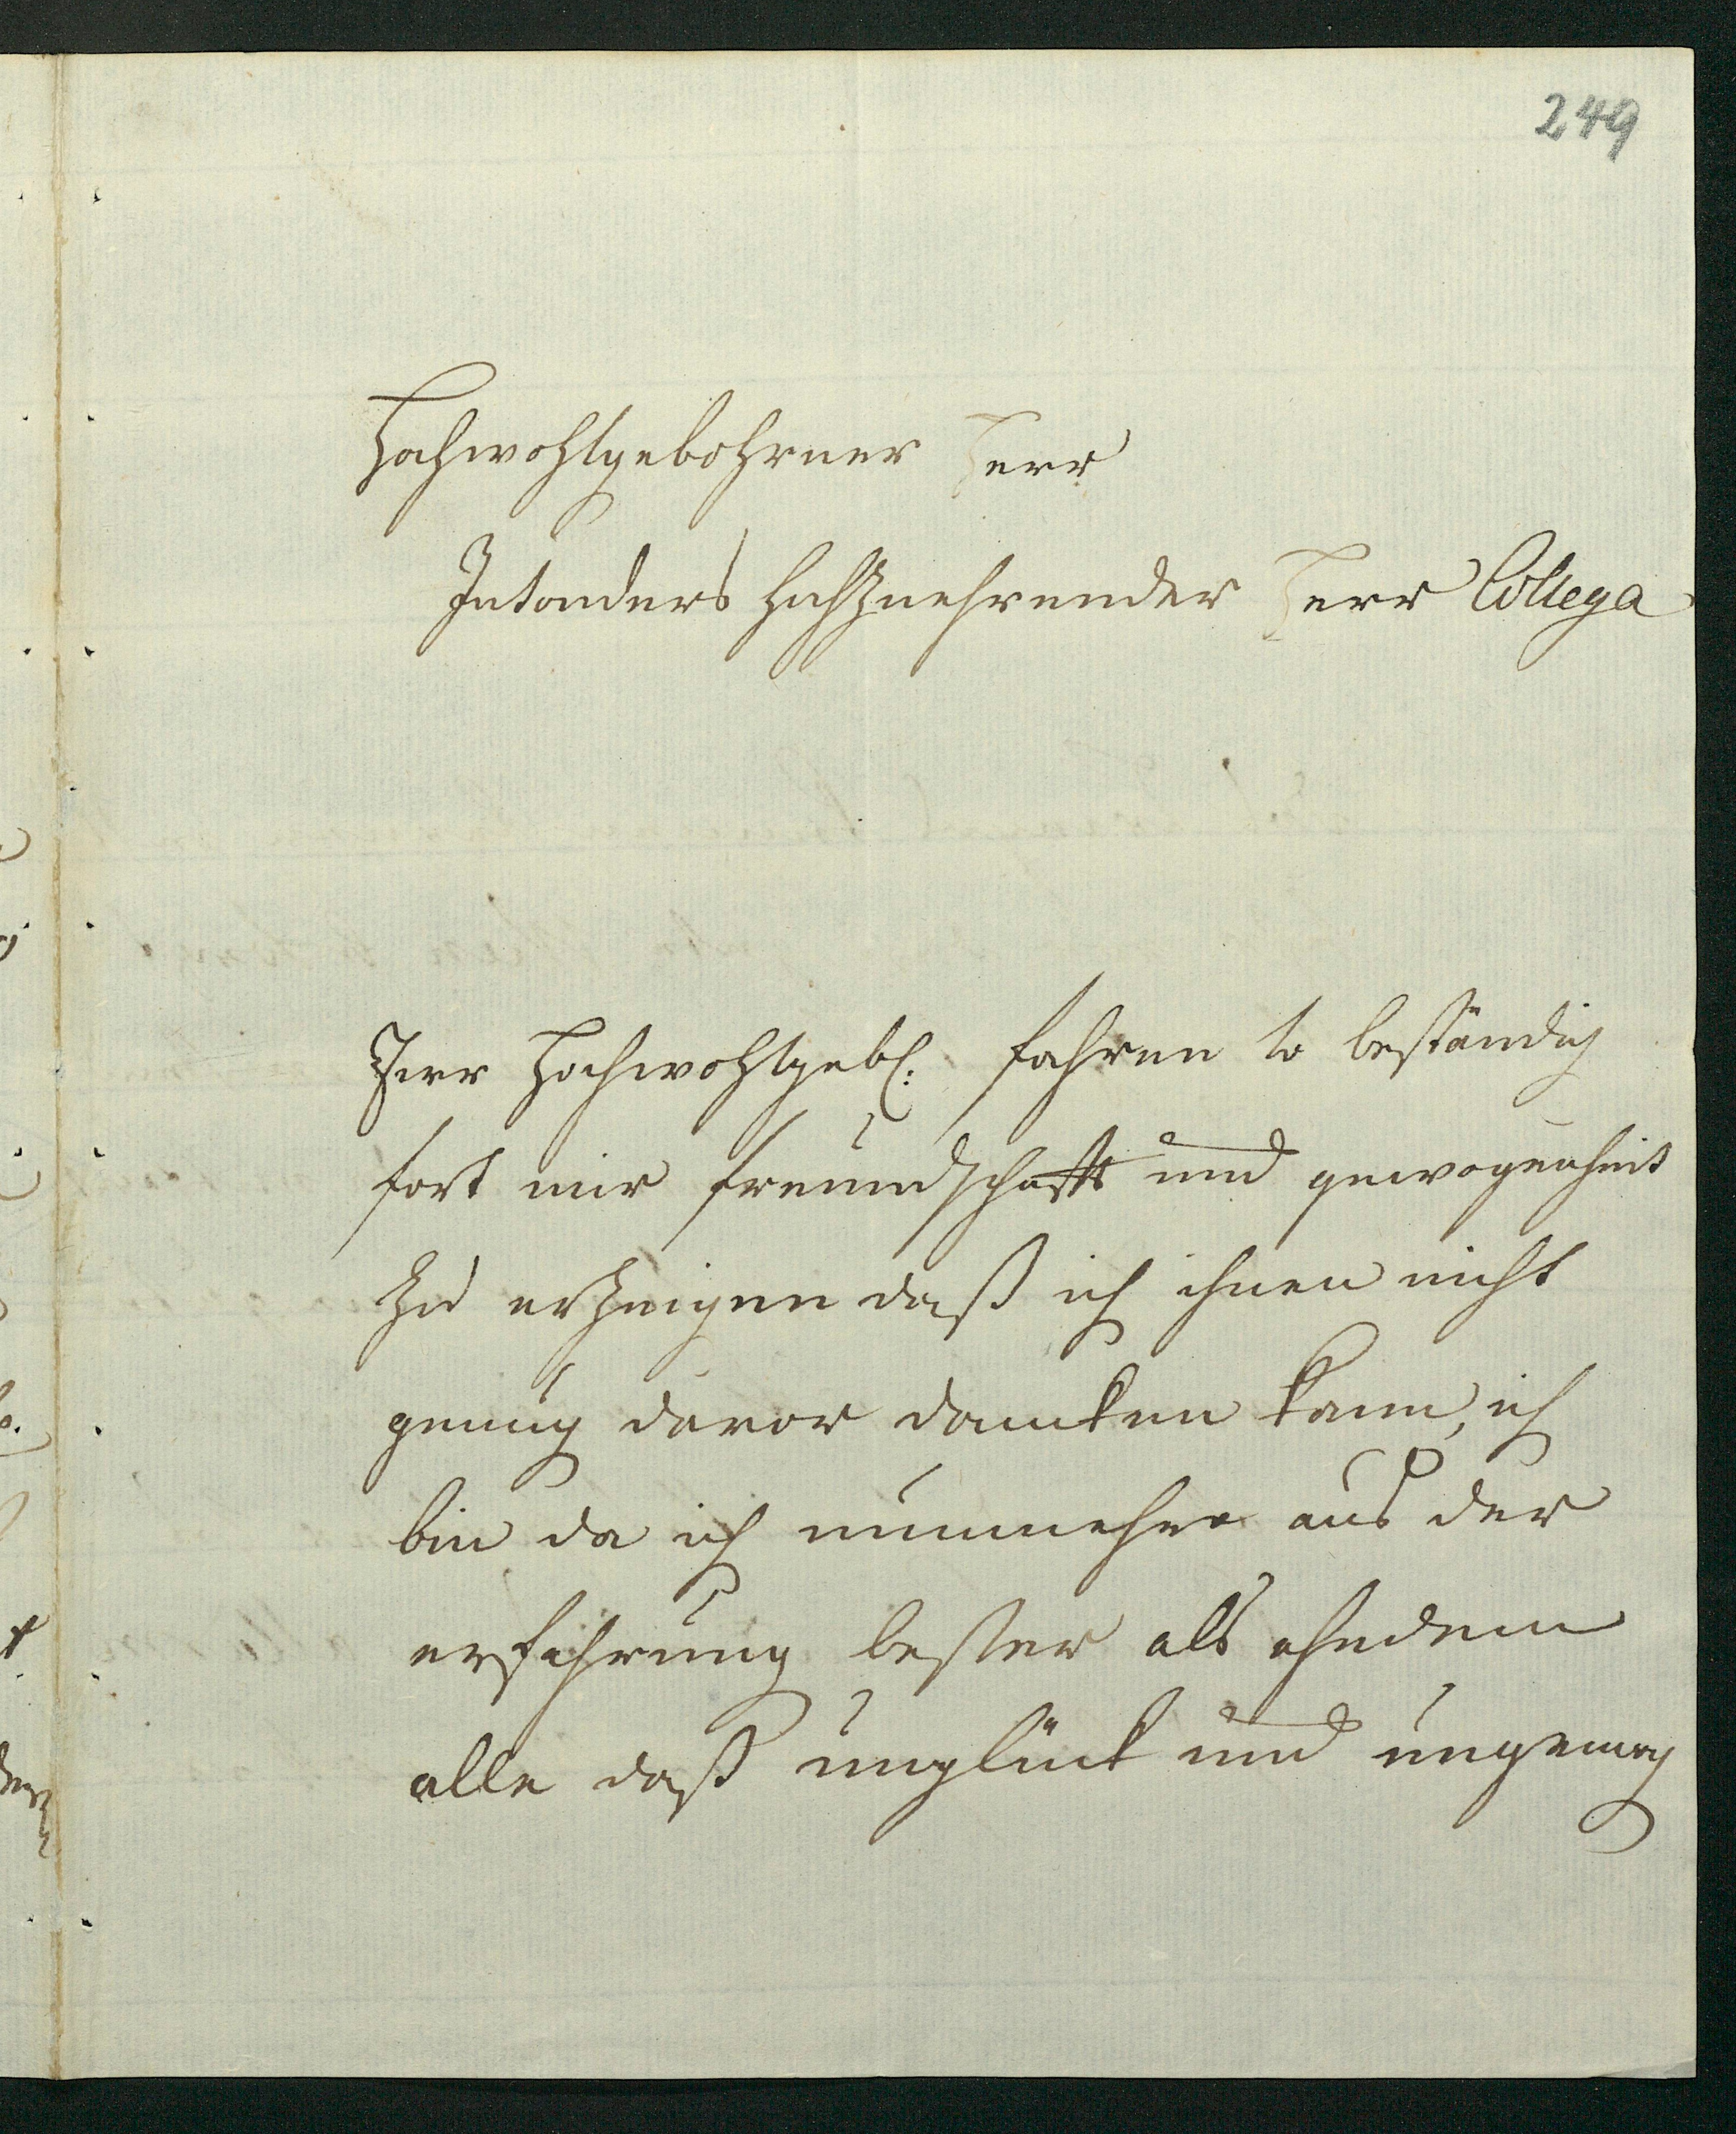 249
Hochwohlgebohrner Herr
Insonders Hochzuehrender Herr Collega
Ihrr Hochwohlgebl: fahren so beständig
fort mir freundschafft und gewogenheit
zu erzeigen daß ich ihnen nicht
genug davor dancken kann, ich
bin da ich nunmehro aus der
erfahrung besser als ehedem
alle daß unglück und ungemag